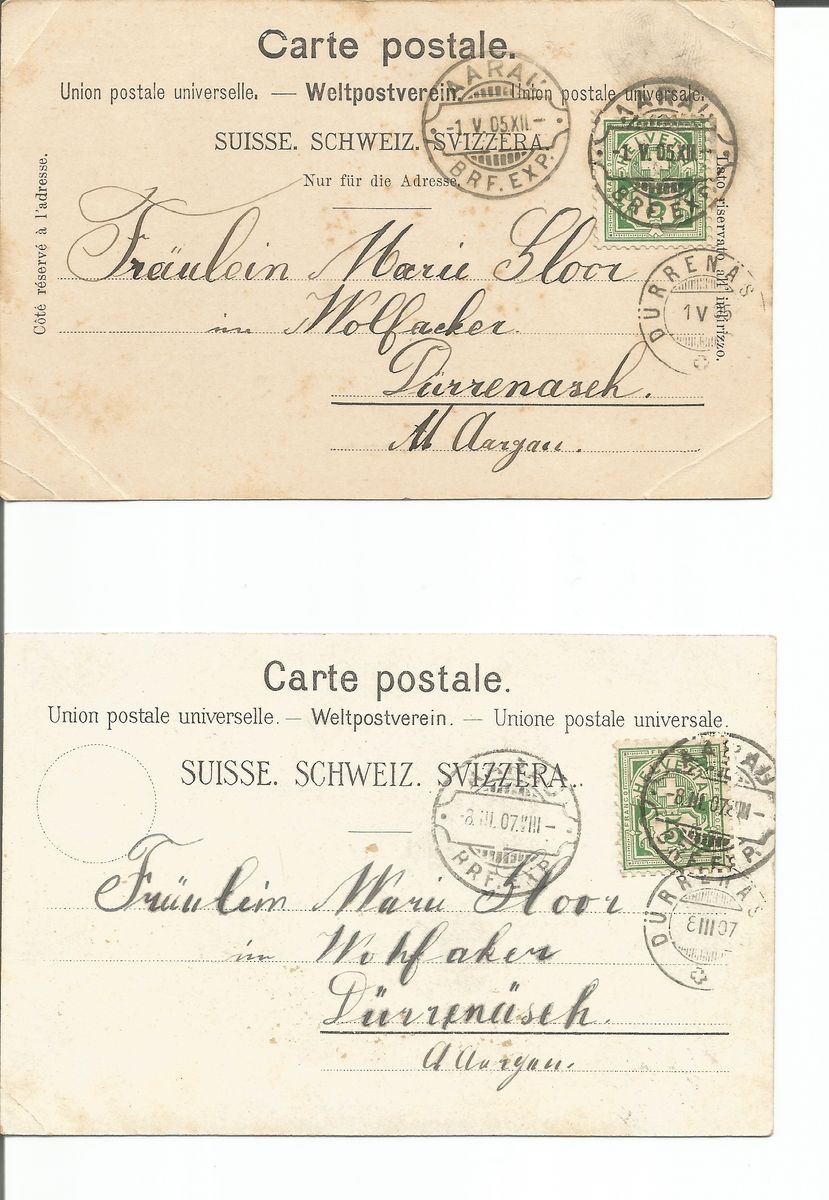 Carte postale.
Union postale universelle. — Weltpostverein. — Union postale universale.
SUISSE. SCHWEIZ. SVIZZERA.
Nur für die Adresse.
Côté réservé à l'adresse.
Lato riservato all' indirizzo.
AARAU
-1.V.05.XII.-
BRF. EXP.
AARAU
-1.V.05.XII.-
BRF. EXP.
HELVETIA
5
DÜRRENÄS
1 V 05
Fräulein Marie Sloor
im Wolfacker.
Dürrenaseh.
Aargau.
Carte postale.
Union postale universelle. — Weltpostverein. — Unione postale universale.
SUISSE. SCHWEIZ. SVIZZERA.
-8.III.07.VIII-
BRF. EXP.
AARAU
-8.III.07.VIII-
BRF. EXP.
FRANCO
HELVETIA
5
DÜRRENÄS
8 III 07
Fräulein Marie Sloor
im Wohfaker
Dürrenäseh.
Aargau.